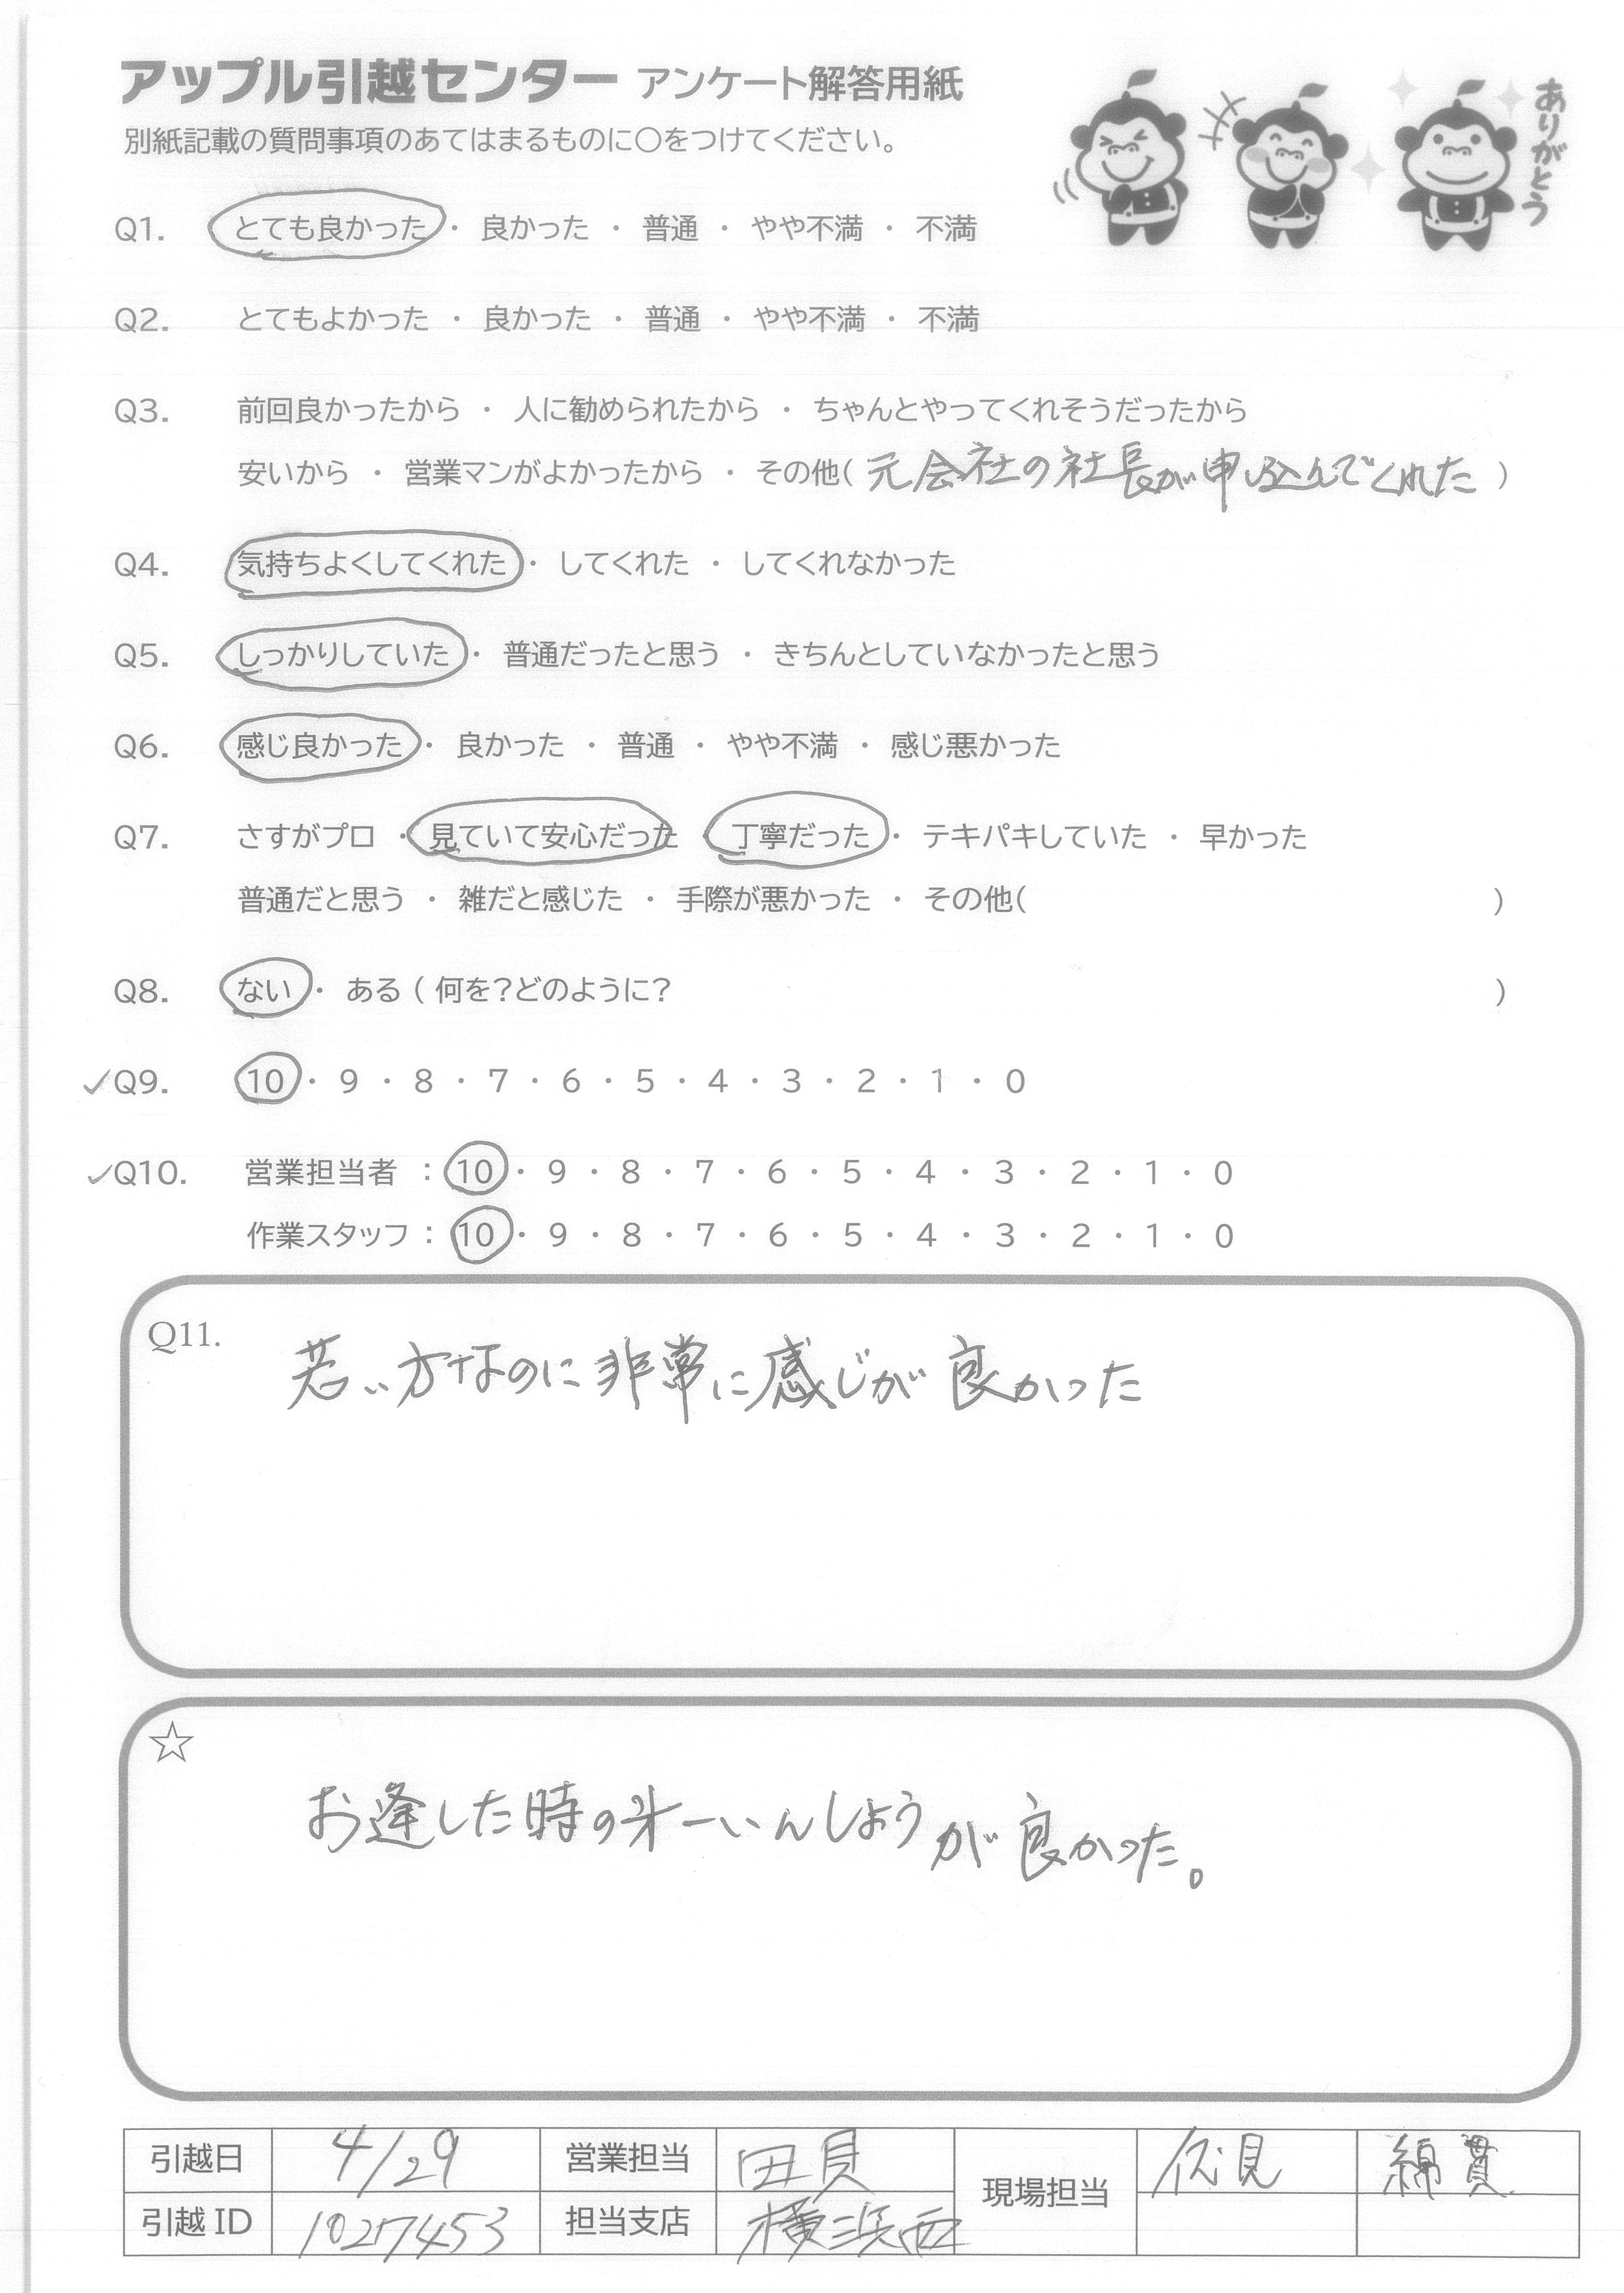 アップル引越センター アンケート解答用紙
ありがとう
別紙記載の質問事項のあてはまるものに〇をつけてください。
Q1. とても良かった ・ 良かった ・ 普通 ・ やや不満 ・ 不満
Q2. とてもよかった ・ 良かった ・ 普通 ・ やや不満 ・ 不満
Q3. 前回良かったから ・ 人に勧められたから ・ ちゃんとやってくれそうだったから
安いから ・ 営業マンがよかったから ・ その他( 元会社の社長が申し込んでくれた )
Q4. 気持ちよくしてくれた ・ してくれた ・ してくれなかった
Q5. しっかりしていた ・ 普通だったと思う ・ きちんとしていなかったと思う
Q6. 感じ良かった ・ 良かった ・ 普通 ・ やや不満 ・ 感じ悪かった
Q7. さすがプロ ・ 見ていて安心だった ・ 丁寧だった ・ テキパキしていた ・ 早かった
普通だと思う ・ 雑だと感じた ・ 手際が悪かった ・ その他( )
Q8. ない ・ ある ( 何を?どのように? )
✓Q9. 10 ・ 9 ・ 8 ・ 7 ・ 6 ・ 5 ・ 4 ・ 3 ・ 2 ・ 1 ・ 0
✓Q10. 営業担当者 : 10 ・ 9 ・ 8 ・ 7 ・ 6 ・ 5 ・ 4 ・ 3 ・ 2 ・ 1 ・ 0
作業スタッフ : 10 ・ 9 ・ 8 ・ 7 ・ 6 ・ 5 ・ 4 ・ 3 ・ 2 ・ 1 ・ 0
Q11. 若い方なのに非常に感じが良かった
☆ お逢した時の㐧一いんしょうが良かった。
引越日 4/29 営業担当 田貝 現場担当 伏見 綿貫
引越ID 1027453 担当支店 横浜西